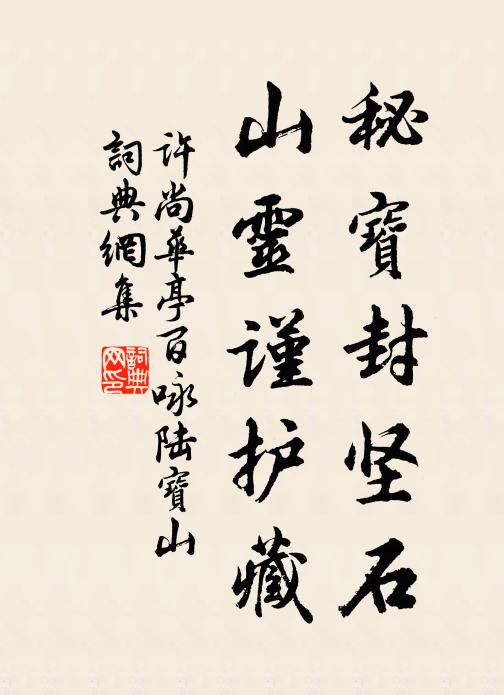 秘寶封坚石
山靈謹护藏
许尚華亭百咏陆寶山
詞典網集
詞典网印